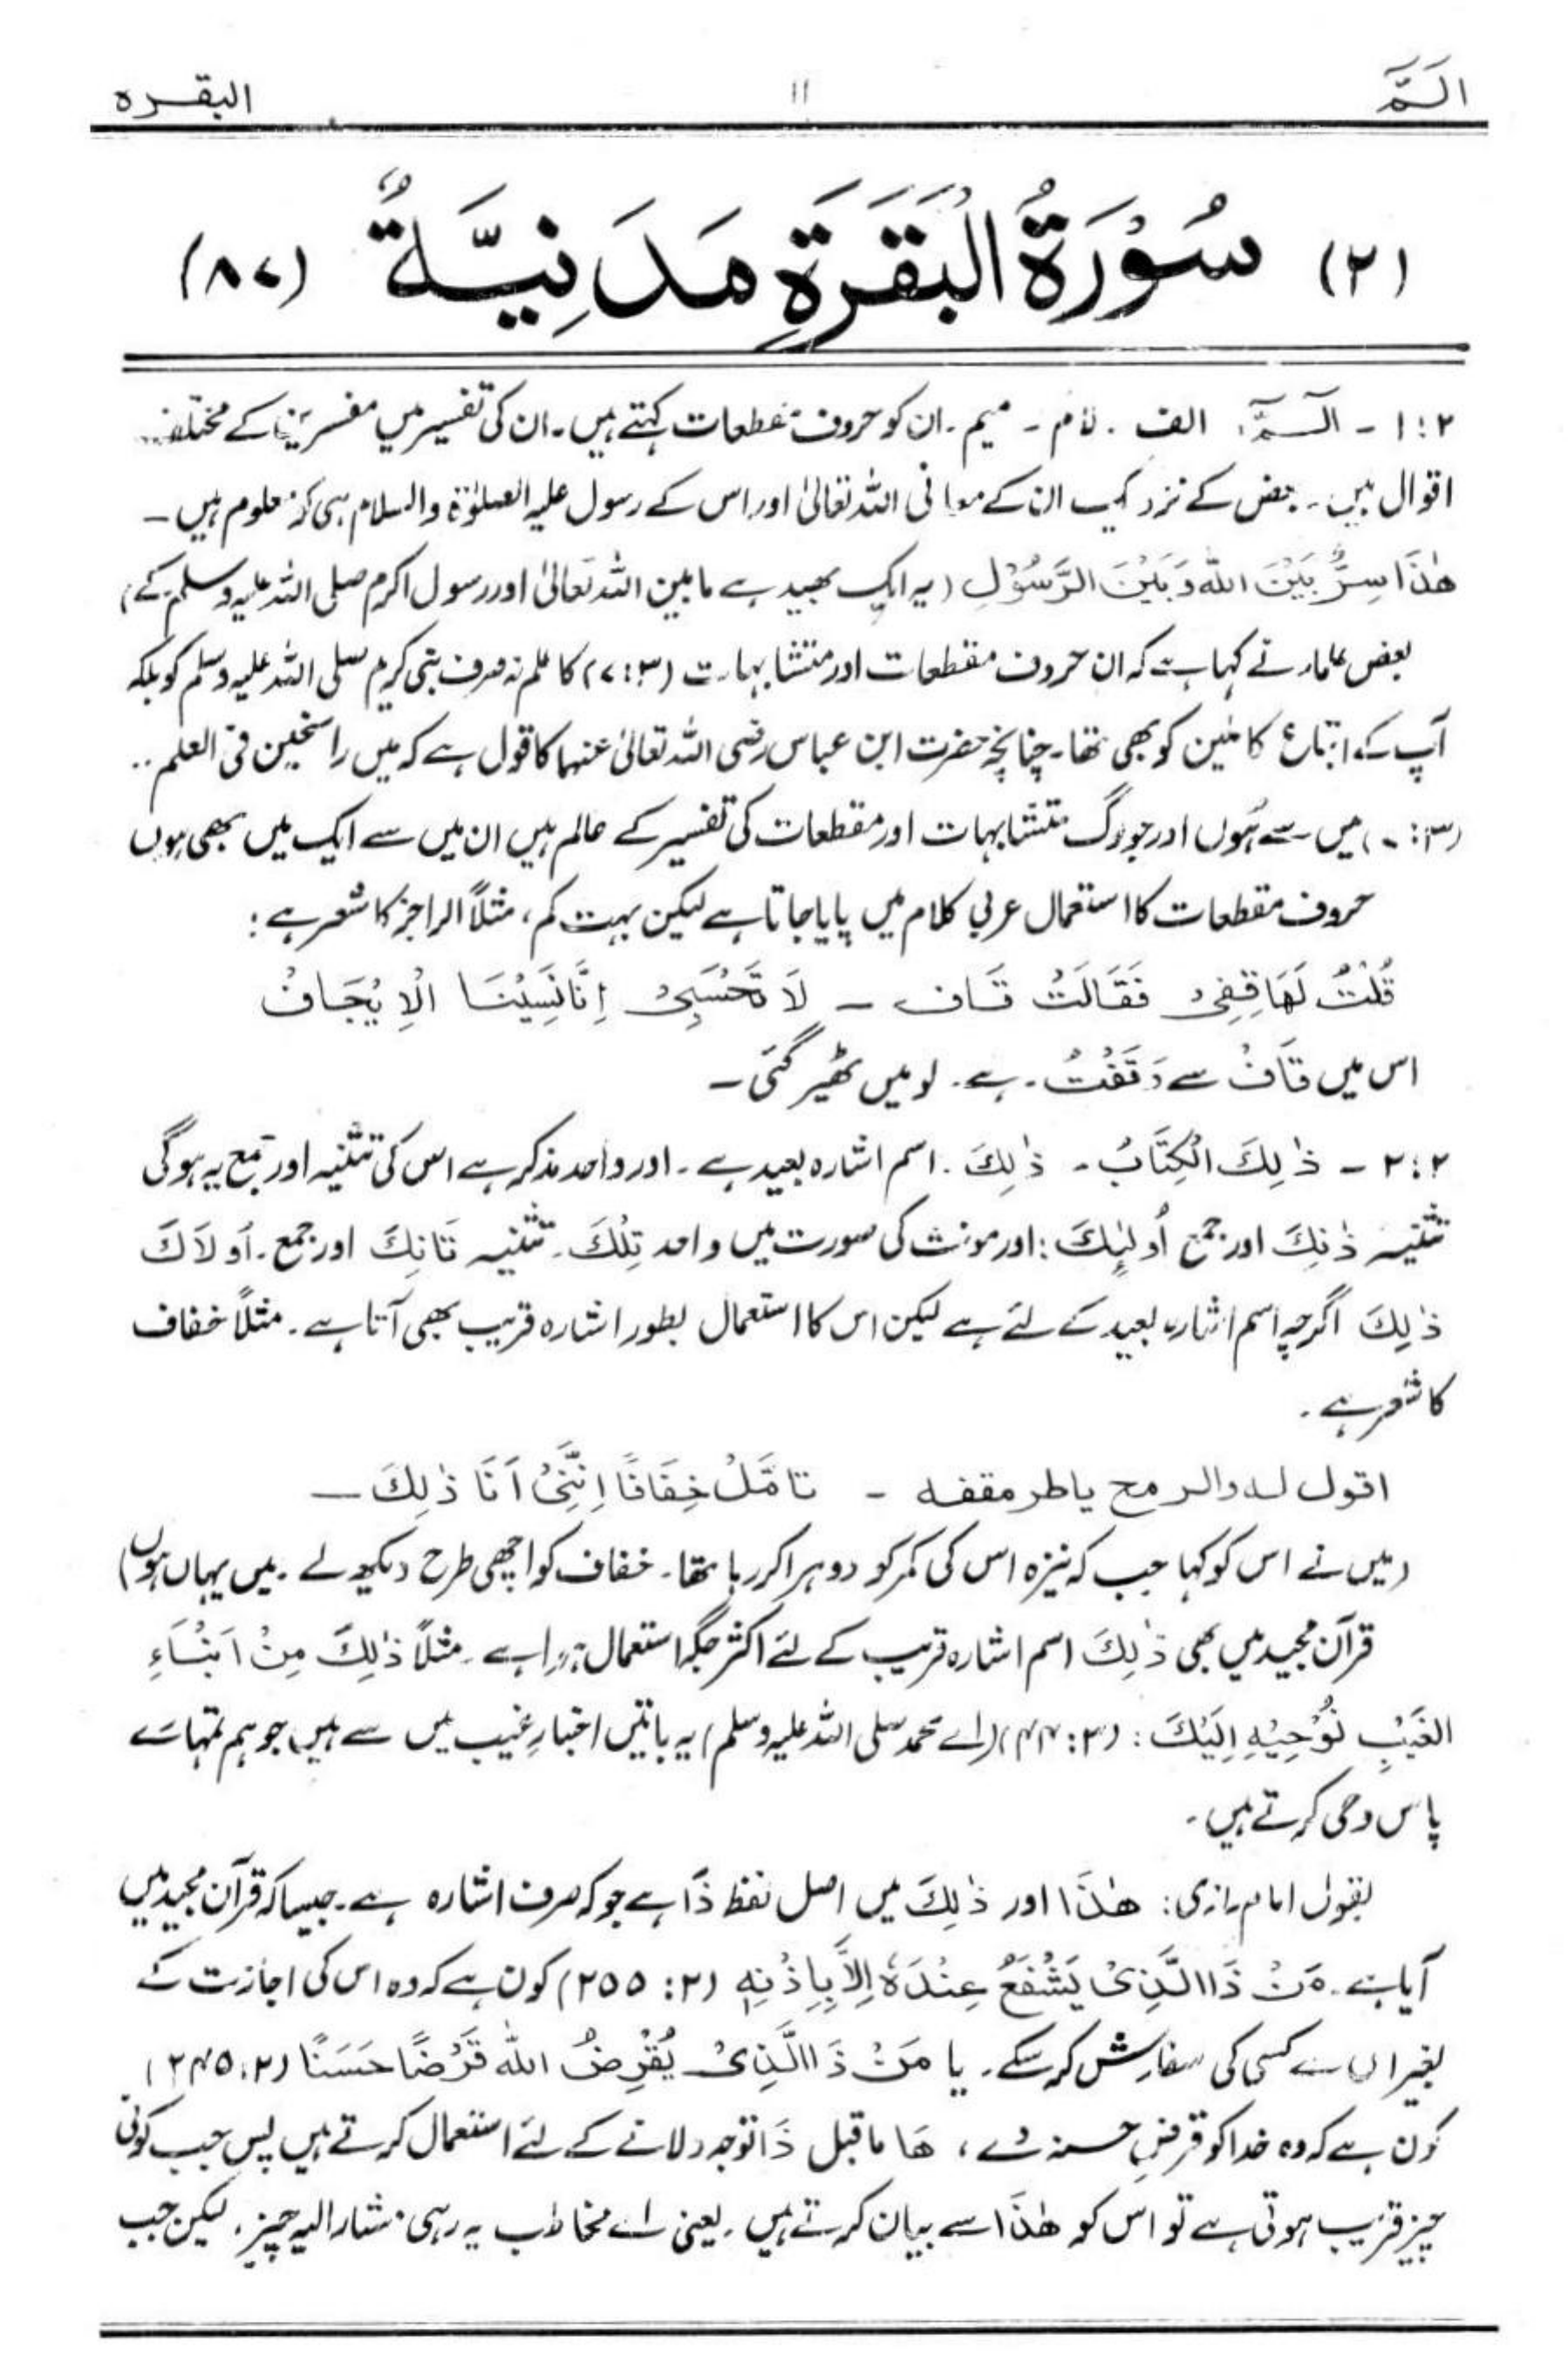 الٓمّٓ ۱۱ البقرہ
(۲) سُوْرَۃُ الْبَقَرَۃِ مَدَنِیَّۃٌ (۸۷)
۲:۱ ۔ الٓمّٓ: الف ۔ لام ۔ میم ۔ ان کو حروف مقطعات کہتے ہیں۔ ان کی تفسیر میں مفسرین کے مختلف
اقوال ہیں ۔ بعض کے نزدیک ان کے معانی اللہ تعالیٰ اور اس کے رسول علیہ الصلوٰۃ والسلام ہی کو معلوم ہیں ۔
ھٰذَا سِرٌّ بَیْنَ اللہ وَ بَیْنَ الرَّسُوْلِ (یہ ایک بھید ہے مابین اللہ تعالیٰ اور رسول اکرم صلی اللہ علیہ وسلم کے)
بعض علماء نے کہا ہے کہ ان حروف مقطعات اور متشابہات (۳:۷) کا علم نہ صرف نبی کریم صلی اللہ علیہ وسلم کو بلکہ
آپ کے اتباع کاملین کو بھی تھا۔ چنانچہ حضرت ابن عباس رضی اللہ تعالیٰ عنہما کا قول ہے کہ میں راسخین فی العلم ..
(۳: ) میں سے ہُوں اور جو لوگ متشابہات اور مقطعات کی تفسیر کے عالم ہیں ان میں سے ایک میں بھی ہوں
حروف مقطعات کا استعمال عربی کلام میں پایا جاتا ہے لیکن بہت کم، مثلاً الراجز کا شعر ہے :
قُلْتُ لَھَا قِفِیْ فَقَالَتْ قَاف ۔ لَا تَحْسَبِیْ اِنَّا نَسِیْنَا الْاِیْجَافْ
اس میں قَافْ سے وَقَفْتُ ۔ ہے ۔ لو میں ٹھیر گئی ۔
۲:۲ ۔ ذٰلِکَ الْکِتَابُ ۔ ذٰلِکَ ۔ اسم اشارہ بعید ہے ۔ اور واحد مذکر ہے اس کی تثنیہ اور جمع یہ ہوگی
تثنیہ ذٰنِکَ اور جمع اُولٰئِکَ : اور مونث کی صورت میں واحد تِلْکَ ۔ تثنیہ تَانِکَ اور جمع ۔ اُولَاکَ
ذٰلِکَ اگرچہ اسم اشارہ بعید کے لئے ہے لیکن اس کا استعمال بطور اشارہ قریب بھی آتا ہے ۔ مثلاً خفاف
کا شعر ہے ۔
اقول لہ والرمح یاطر مقفہ ۔ تامَّلْ خِفَافًا اِنَّنِیْ اَنَا ذٰلِکَ ۔
(میں نے اس کو کہا جب کہ نیزہ اس کی کمر کو دوہرا کر رہا تھا ۔ خفاف کو اچھی طرح دیکھ لے ۔ میں یہاں ہوں)
قرآن مجید میں بھی ذٰلِکَ اسم اشارہ قریب کے لئے اکثر جگہ استعمال ہوا ہے ۔ مثلاً ذٰلِکَ مِنْ اَنْبَاءِ
الغَیْبِ نُوْحِیْہِ اِلَیْکَ : (۳:۴۴) (اے محمد صلی اللہ علیہ وسلم) یہ باتیں اخبارِ غیب میں سے ہیں جو ہم تمہارے
پاس وحی کرتے ہیں ۔
بقول امام رازی : ھٰذَا اور ذٰلِکَ میں اصل لفظ ذَا ہے جو کہ حرف اشارہ ہے ۔ جیسا کہ قرآن مجید میں
آیا ہے ۔ مَنْ ذَا الَّذِیْ یَشْفَعُ عِنْدَہٗ اِلَّا بِاِذْنِہٖ (۲: ۲۵۵) کون ہے کہ وہ اس کی اجازت کے
بغیر اس سے کسی کی سفارش کر سکے ۔ یا مَنْ ذَا الَّذِیْ یُقْرِضُ اللہَ قَرْضًا حَسَنًا (۲:۲۴۵)
کون ہے کہ وہ خدا کو قرضِ حسنہ دے ، ھَا ماقبل ذَا توجہ دلانے کے لئے استعمال کرتے ہیں پس جب کوئی
چیز قریب ہوتی ہے تو اس کو ھٰذَا سے بیان کرتے ہیں ۔ یعنی اے مخاطب یہ رہی مشار الیہ چیز ۔ لیکن جب